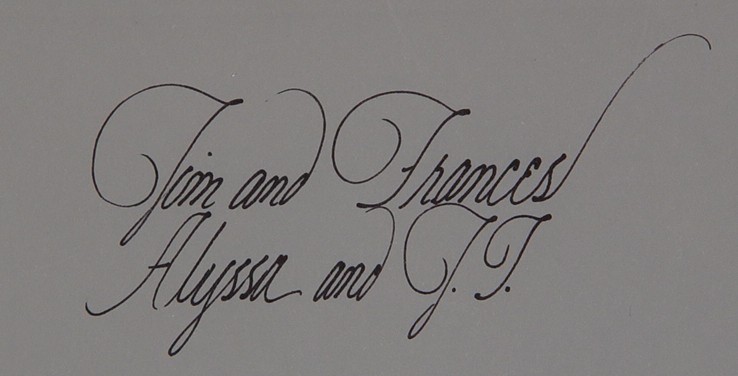 Jim and Frances
Alyssa and J.T.